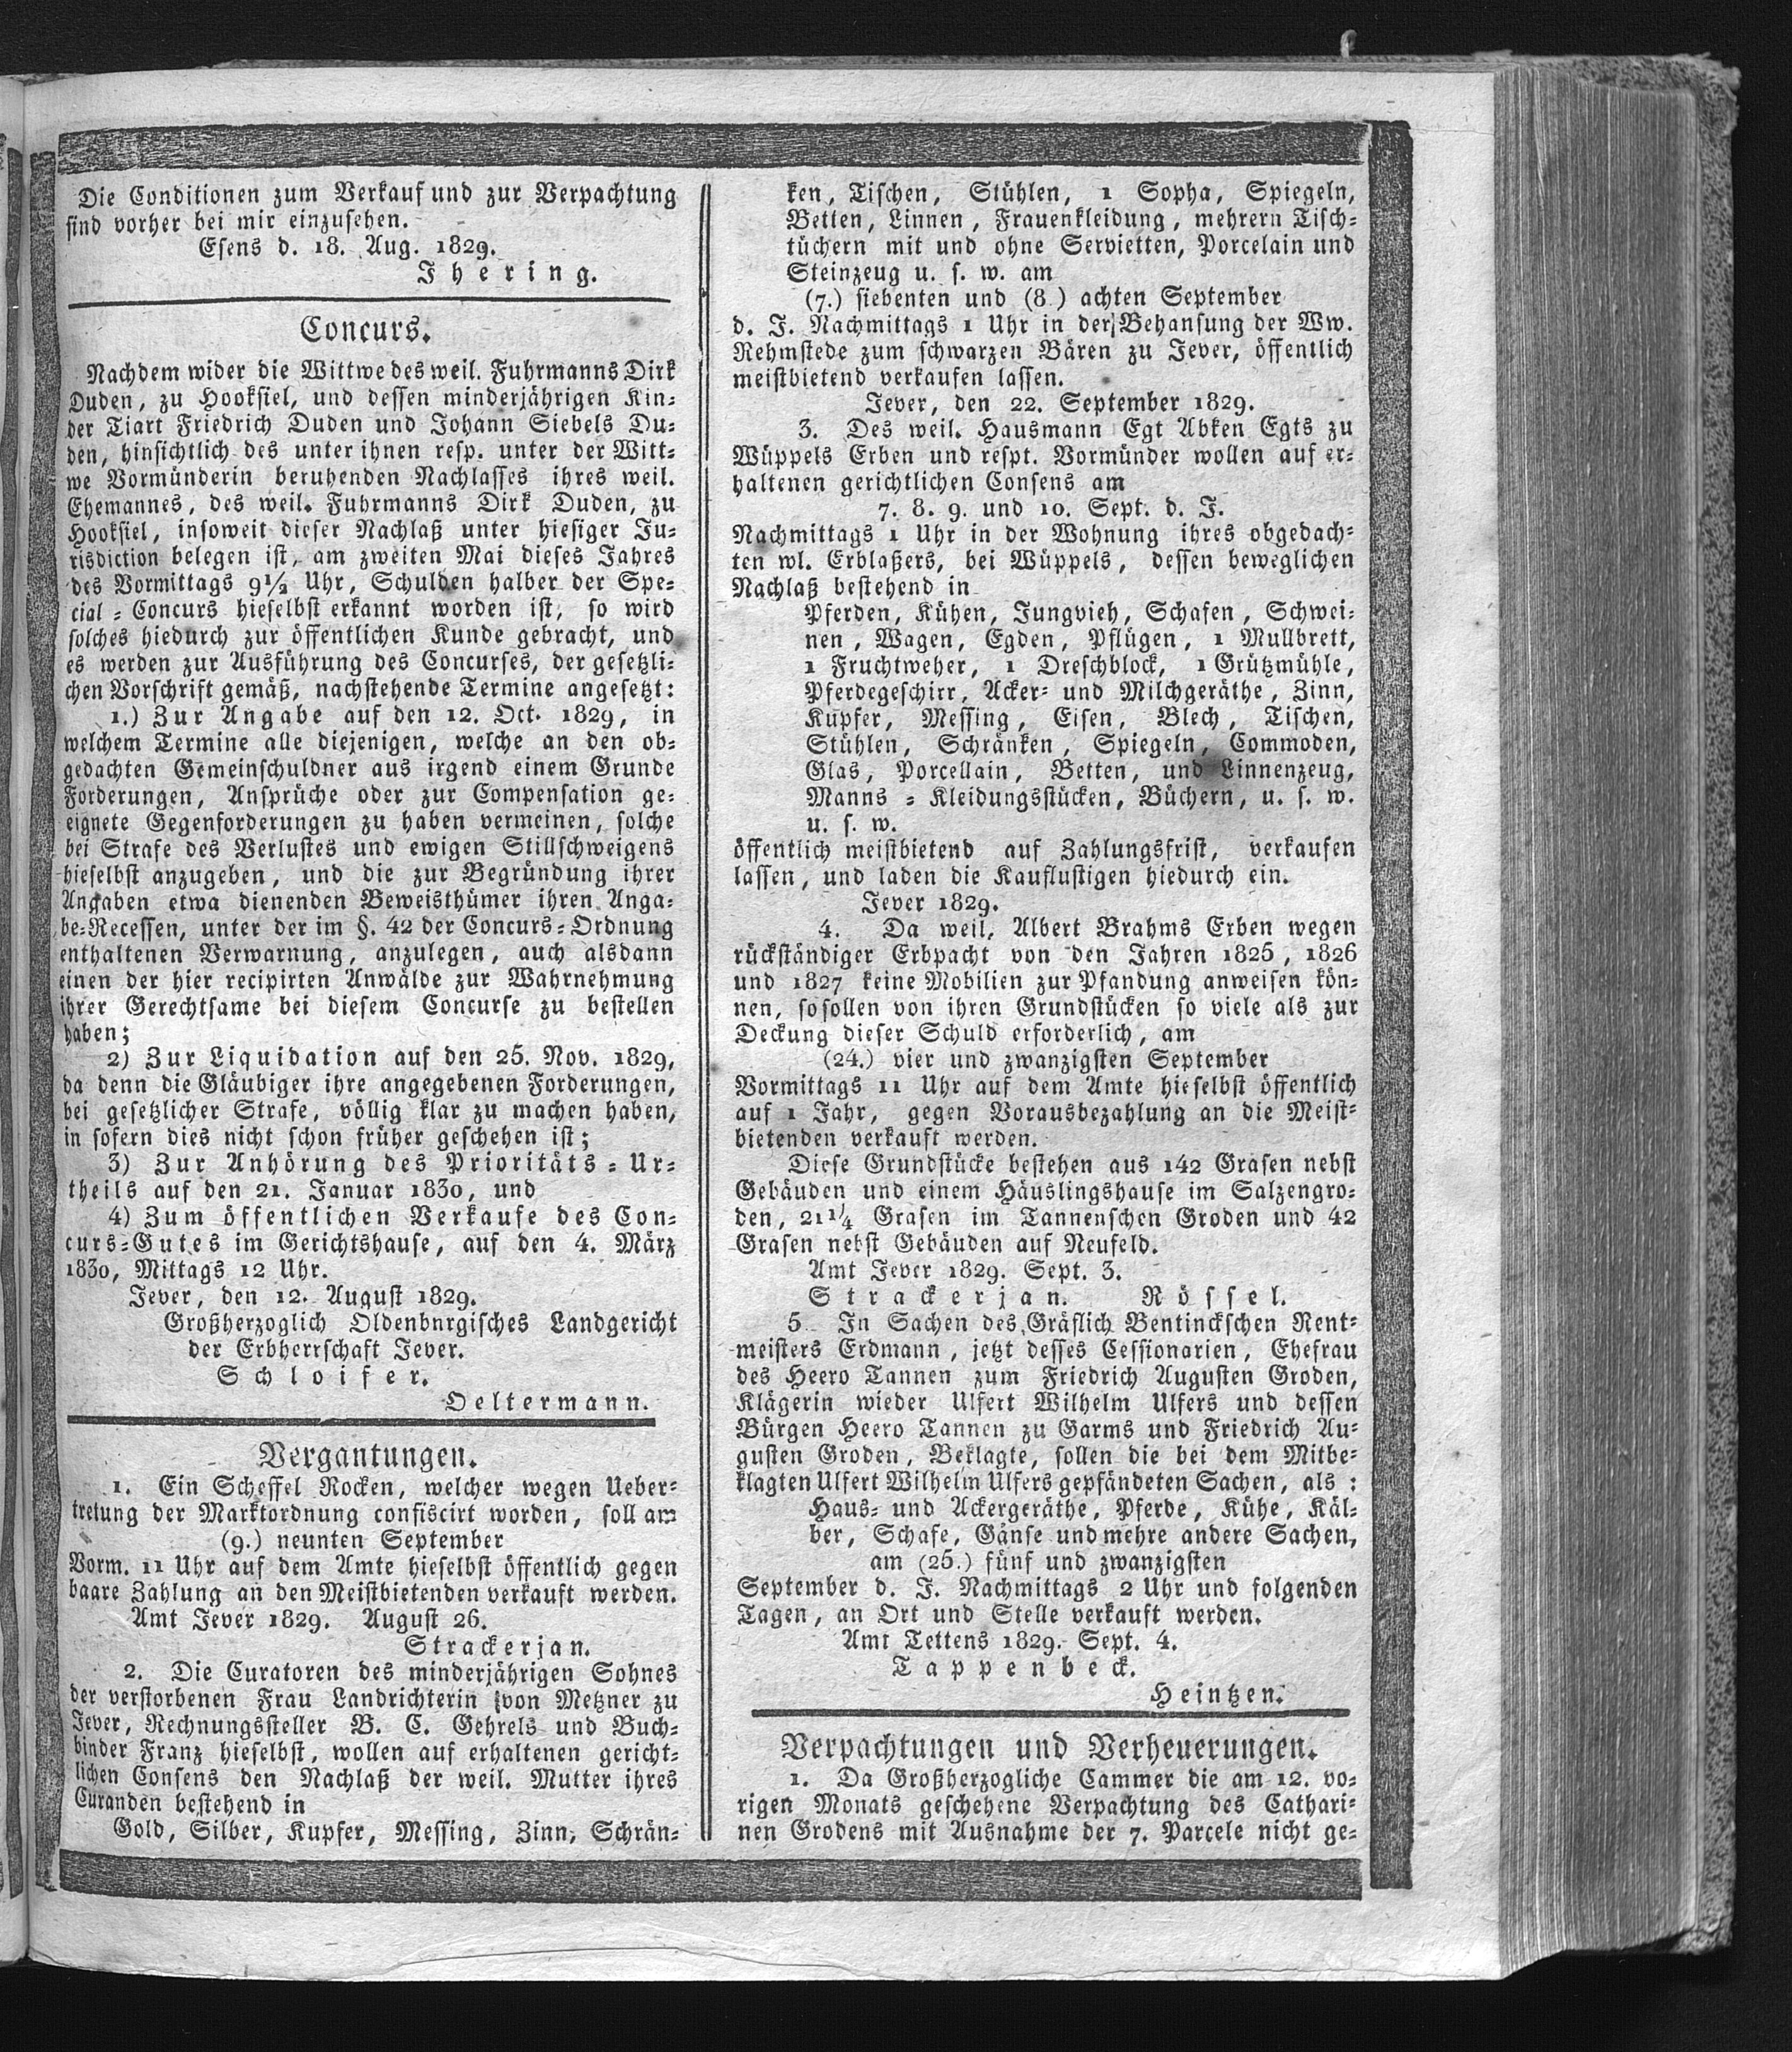 Die Conditionen zum Verkauf und zur Verpachtung
sind vorher bei mir einzusehen.
Esens d. 18. Aug. 1829.
Jhering.
Concurs.
Nachdem wider die Wittwe des weil. Fuhrmanns Dirk
Duden, zu Hooksiel, und dessen minderjährigen Kin=
der Tiart Friedrich Duden und Johann Siebels Du=
den, hinsichtlich des unter ihnen resp. unter der Witt=
we Vormünderin beruhenden Nachlasses ihres weil.
Ehemannes, des weil. Fuhrmanns Dirk Duden, zu
Hooksiel, insoweit dieser Nachlaß unter hiesiger Ju=
risdiction belegen ist, am zweiten Mai dieses Jahres
des Vormittags 9½ Uhr, Schulden halber der Spe=
cial = Concurs hieselbst erkannt worden ist, so wird
solches hiedurch zur öffentlichen Kunde gebracht, und
es werden zur Ausführung des Concurses, der gesetzli=
chen Vorschrift gemäß, nachstehende Termine angesetzt:
1.) Zur Angabe auf den 12. Oct. 1829, in
welchem Termine alle diejenigen, welche an den ob=
gedachten Gemeinschuldner aus irgend einem Grunde
Forderungen, Ansprüche oder zur Compensation ge=
eignete Gegenforderungen zu haben vermeinen, solche
bei Strafe des Verlustes und ewigen Stillschweigens
hieselbst anzugeben, und die zur Begründung ihrer
Angaben etwa dienenden Beweisthümer ihren Anga=
be=Recessen, unter der im §. 42 der Concurs=Ordnung
enthaltenen Verwarnung, anzulegen, auch alsdann
einen der hier recipirten Anwälde zur Wahrnehmung
ihrer Gerechtsame bei diesem Concurse zu bestellen
haben;
2) Zur Liquidation auf den 25. Nov. 1829,
da denn die Gläubiger ihre angegebenen Forderungen,
bei gesetzlicher Strafe, völlig klar zu machen haben,
in sofern dies nicht schon früher geschehen ist;
3) Zur Anhörung des Prioritäts = Ur=
theils auf den 21. Januar 1830, und
4) Zum öffentlichen Verkaufe des Con=
curs=Gutes im Gerichtshause, auf den 4. März
1830, Mittags 12 Uhr.
Jever, den 12. August 1829.
Großherzoglich Oldenbnrgisches Landgericht
der Erbherrschaft Jever.
Schloifer.
Oeltermann.
Vergantungen.
1. Ein Scheffel Rocken, welcher wegen Ueber=
tretung der Marktordnung confiscirt worden, soll am
(9.) neunten September
Vorm. 11 Uhr auf dem Amte hieselbst öffentlich gegen
baare Zahlung an den Meistbietenden verkauft werden.
Amt Jever 1829. August 26.
Strackerjan.
2. Die Curatoren des minderjährigen Sohnes
der verstorbenen Frau Landrichterin von Metzner zu
Jever, Rechnungssteller B. C. Gehrels und Buch=
binder Franz hieselbst, wollen auf erhaltenen gericht=
lichen Consens den Nachlaß der weil. Mutter ihres
Curanden bestehend in
Gold, Silber, Kupfer, Messing, Zinn, Schrän=
ken, Tischen, Stühlen, 1 Sopha, Spiegeln,
Betten, Linnen, Frauenkleidung, mehrern Tisch=
tüchern mit und ohne Servietten, Porcelain und
Steinzeug u. s. w. am
(7.) siebenten und (8.) achten September
d. J. Nachmittags 1 Uhr in der Behansung der Ww.
Rehmstede zum schwarzen Bären zu Jever, öffentlich
meistbietend verkaufen lassen.
Jever, den 22. September 1829.
3. Des weil. Hausmann Egt Abken Egts zu
Wüppels Erben und respt. Vormünder wollen auf er=
haltenen gerichtlichen Consens am
7. 8. 9. und 10. Sept. d. J.
Nachmittags 1 Uhr in der Wohnung ihres obgedach=
ten wl. Erblaßers, bei Wüppels, dessen beweglichen
Nachlaß bestehend in
Pferden, Kühen, Jungvieh, Schafen, Schwei=
nen, Wagen, Egden, Pflügen, 1 Mullbrett,
1 Fruchtweher, 1 Dreschblock, 1 Grützmühle,
Pferdegeschirr, Acker= und Milchgeräthe, Zinn,
Kupfer, Messing, Eisen, Blech, Tischen,
Stühlen, Schränken, Spiegeln, Commoden,
Glas, Porcellain, Betten, und Linnenzeug,
Manns = Kleidungsstücken, Büchern, u. s. w.
u. s. w.
öffentlich meistbietend auf Zahlungsfrist, verkaufen
lassen, und laden die Kauflustigen hiedurch ein.
Jever 1829.
4. Da weil. Albert Brahms Erben wegen
rückständiger Erbpacht von den Jahren 1825, 1826
und 1827 keine Mobilien zur Pfandung anweisen kön=
nen, so sollen von ihren Grundstücken so viele als zur
Deckung dieser Schuld erforderlich, am
(24.) vier und zwanzigsten September
Vormittags 11 Uhr auf dem Amte hieselbst öffentlich
auf 1 Jahr, gegen Vorausbezahlung an die Meist=
bietenden verkauft werden.
Diese Grundstücke bestehen aus 142 Grasen nebst
Gebäuden und einem Häuslingshause im Salzengro=
den, 21¼ Grasen im Tannenschen Groden und 42
Grasen nebst Gebäuden auf Neufeld.
Amt Jever 1829. Sept. 3.
Strackerjan. Rössel.
5. In Sachen des Gräflich Bentinckschen Rent=
meisters Erdmann, jetzt desses Cessionarien, Ehefrau
des Heero Tannen zum Friedrich Augusten Groden,
Klägerin wieder Ulfert Wilhelm Ulfers und dessen
Bürgen Heero Tannen zu Garms und Friedrich Au=
gusten Groden, Beklagte, sollen die bei dem Mitbe=
klagten Ulfert Wilhelm Ulfers gepfändeten Sachen, als:
Haus= und Ackergeräthe, Pferde, Kühe, Käl=
ber, Schafe, Gänse und mehre andere Sachen,
am (25.) fünf und zwanzigsten
September d. J. Nachmittags 2 Uhr und folgenden
Tagen, an Ort und Stelle verkauft werden.
Amt Tettens 1829. Sept. 4.
Tappenbeck.
Heintzen.
Verpachtungen und Verheuerungen.
1. Da Großherzogliche Cammer die am 12. vo=
rigen Monats geschehene Verpachtung des Cathari=
nen Grodens mit Ausnahme der 7. Parcele nicht ge=